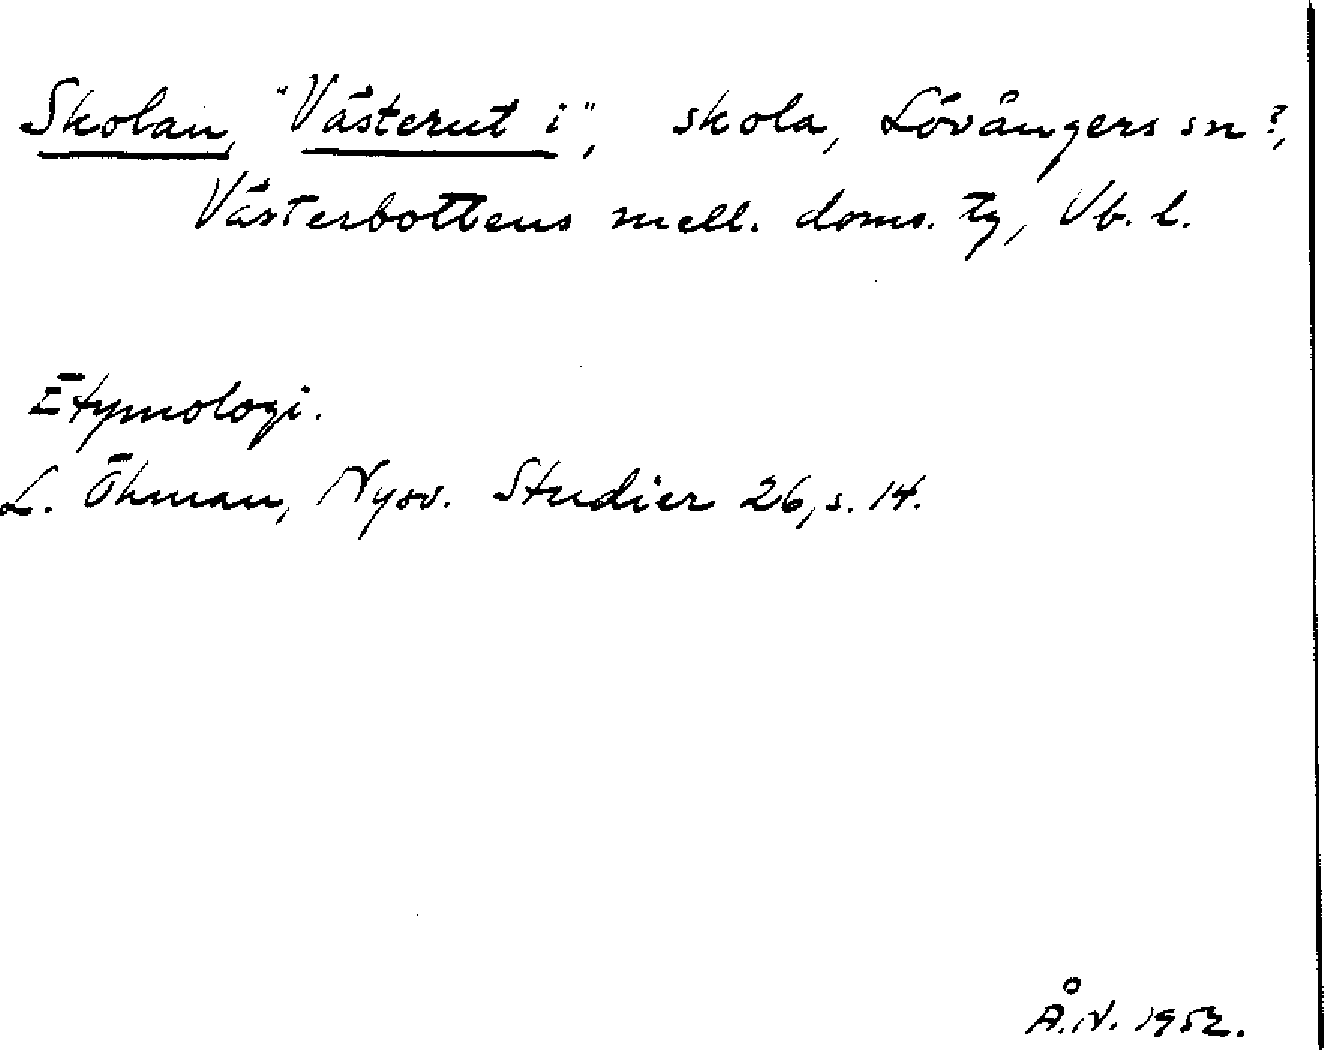 Skolan, "Västerut i", skola, Lövångers sn?,
Västerbottens mell. doms. tg, Vb. l.
Etymologi.
L. Öhman, Nysv. Studier 26, s. 14.
Å.N. 1952.